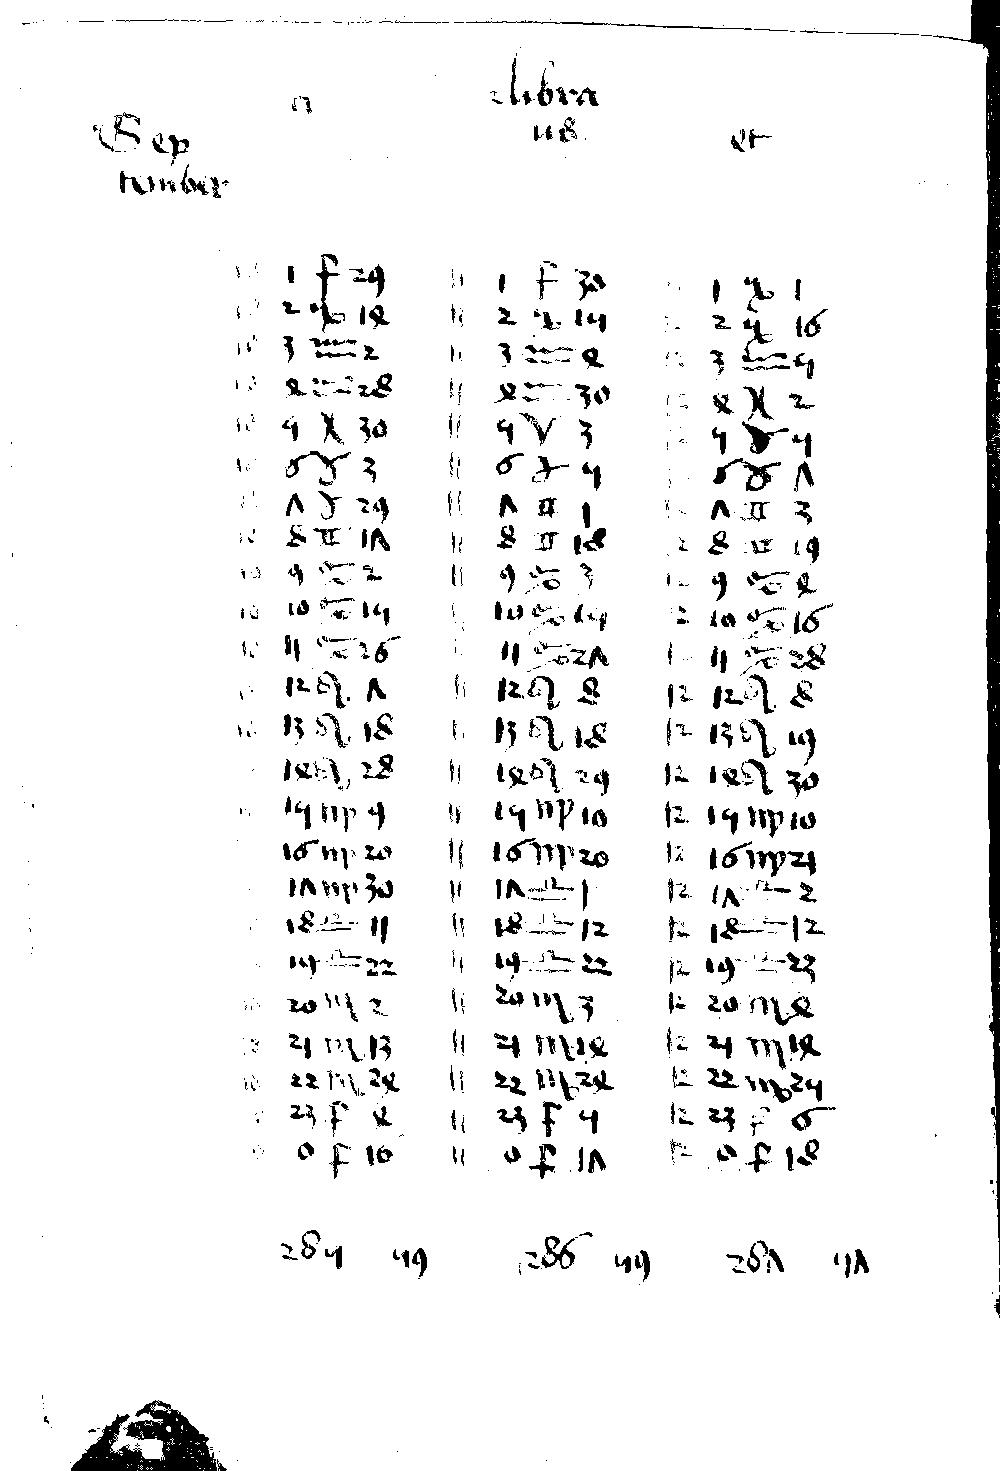 a libra
Sep us et
tember
10 1 ♐ 29 11 1 ♐ 30 1 ♑ 1
10 2 ♑ 14 11 2 ♑ 15 12 2 ♑ 16
10 3 ♒ 2 11 3 ♒ 4 12 3 ♒ 5
10 4 ♒ 28 11 4 ♒ 30 12 4 ♓ 2
10 5 ♓ 30 11 5 ♈ 3 12 5 5
10 6 ♉ 3 11 6 ♉ 5 6 ♉ 7
10 7 ♉ 29 11 7 ♊ 1 12 7 ♊ 3
10 8 ♊ 17 11 8 ♊ 18 12 8 ♊ 19
10 9 ♋ 2 11 9 ♋ 3 12 9 ♋ 4
10 10 ♋ 15 11 10 ♋ 15 12 10 ♋ 16
10 11 ♋ 26 11 11 ♋ 27 12 11 ♋ 28
10 12 ♌ 7 11 12 ♌ 8 12 12 ♌ 8
10 13 ♌ 18 11 13 ♌ 18 12 13 ♌ 19
14 ♌ 28 11 14 ♌ 29 12 14 ♌ 30
10 15 ♍ 9 11 15 ♍ 10 12 15 ♍ 10
16 ♍ 20 11 16 ♍ 20 12 16 ♍ 21
17 ♍ 30 11 17 ♎ 1 12 17 ♎ 2
18 ♎ 11 11 18 ♎ 12 12 18 ♎ 12
19 ♎ 22 11 19 ♎ 22 12 19 ♎ 23
10 20 ♏ 2 11 20 ♏ 3 12 20 ♏ 4
10 21 ♏ 13 11 21 ♏ 14 12 21 ♏ 14
10 22 ♏ 24 11 22 ♏ 24 12 22 ♏ 25
23 ♐ 4 11 23 ♐ 5 12 23 ♐ 6
0 ♐ 16 11 0 ♐ 17 12 0 ♐ 18
285 59 286 59 287 57